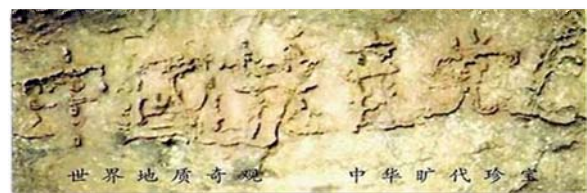 中國共産党
世界地质奇观 中华旷代珍宝